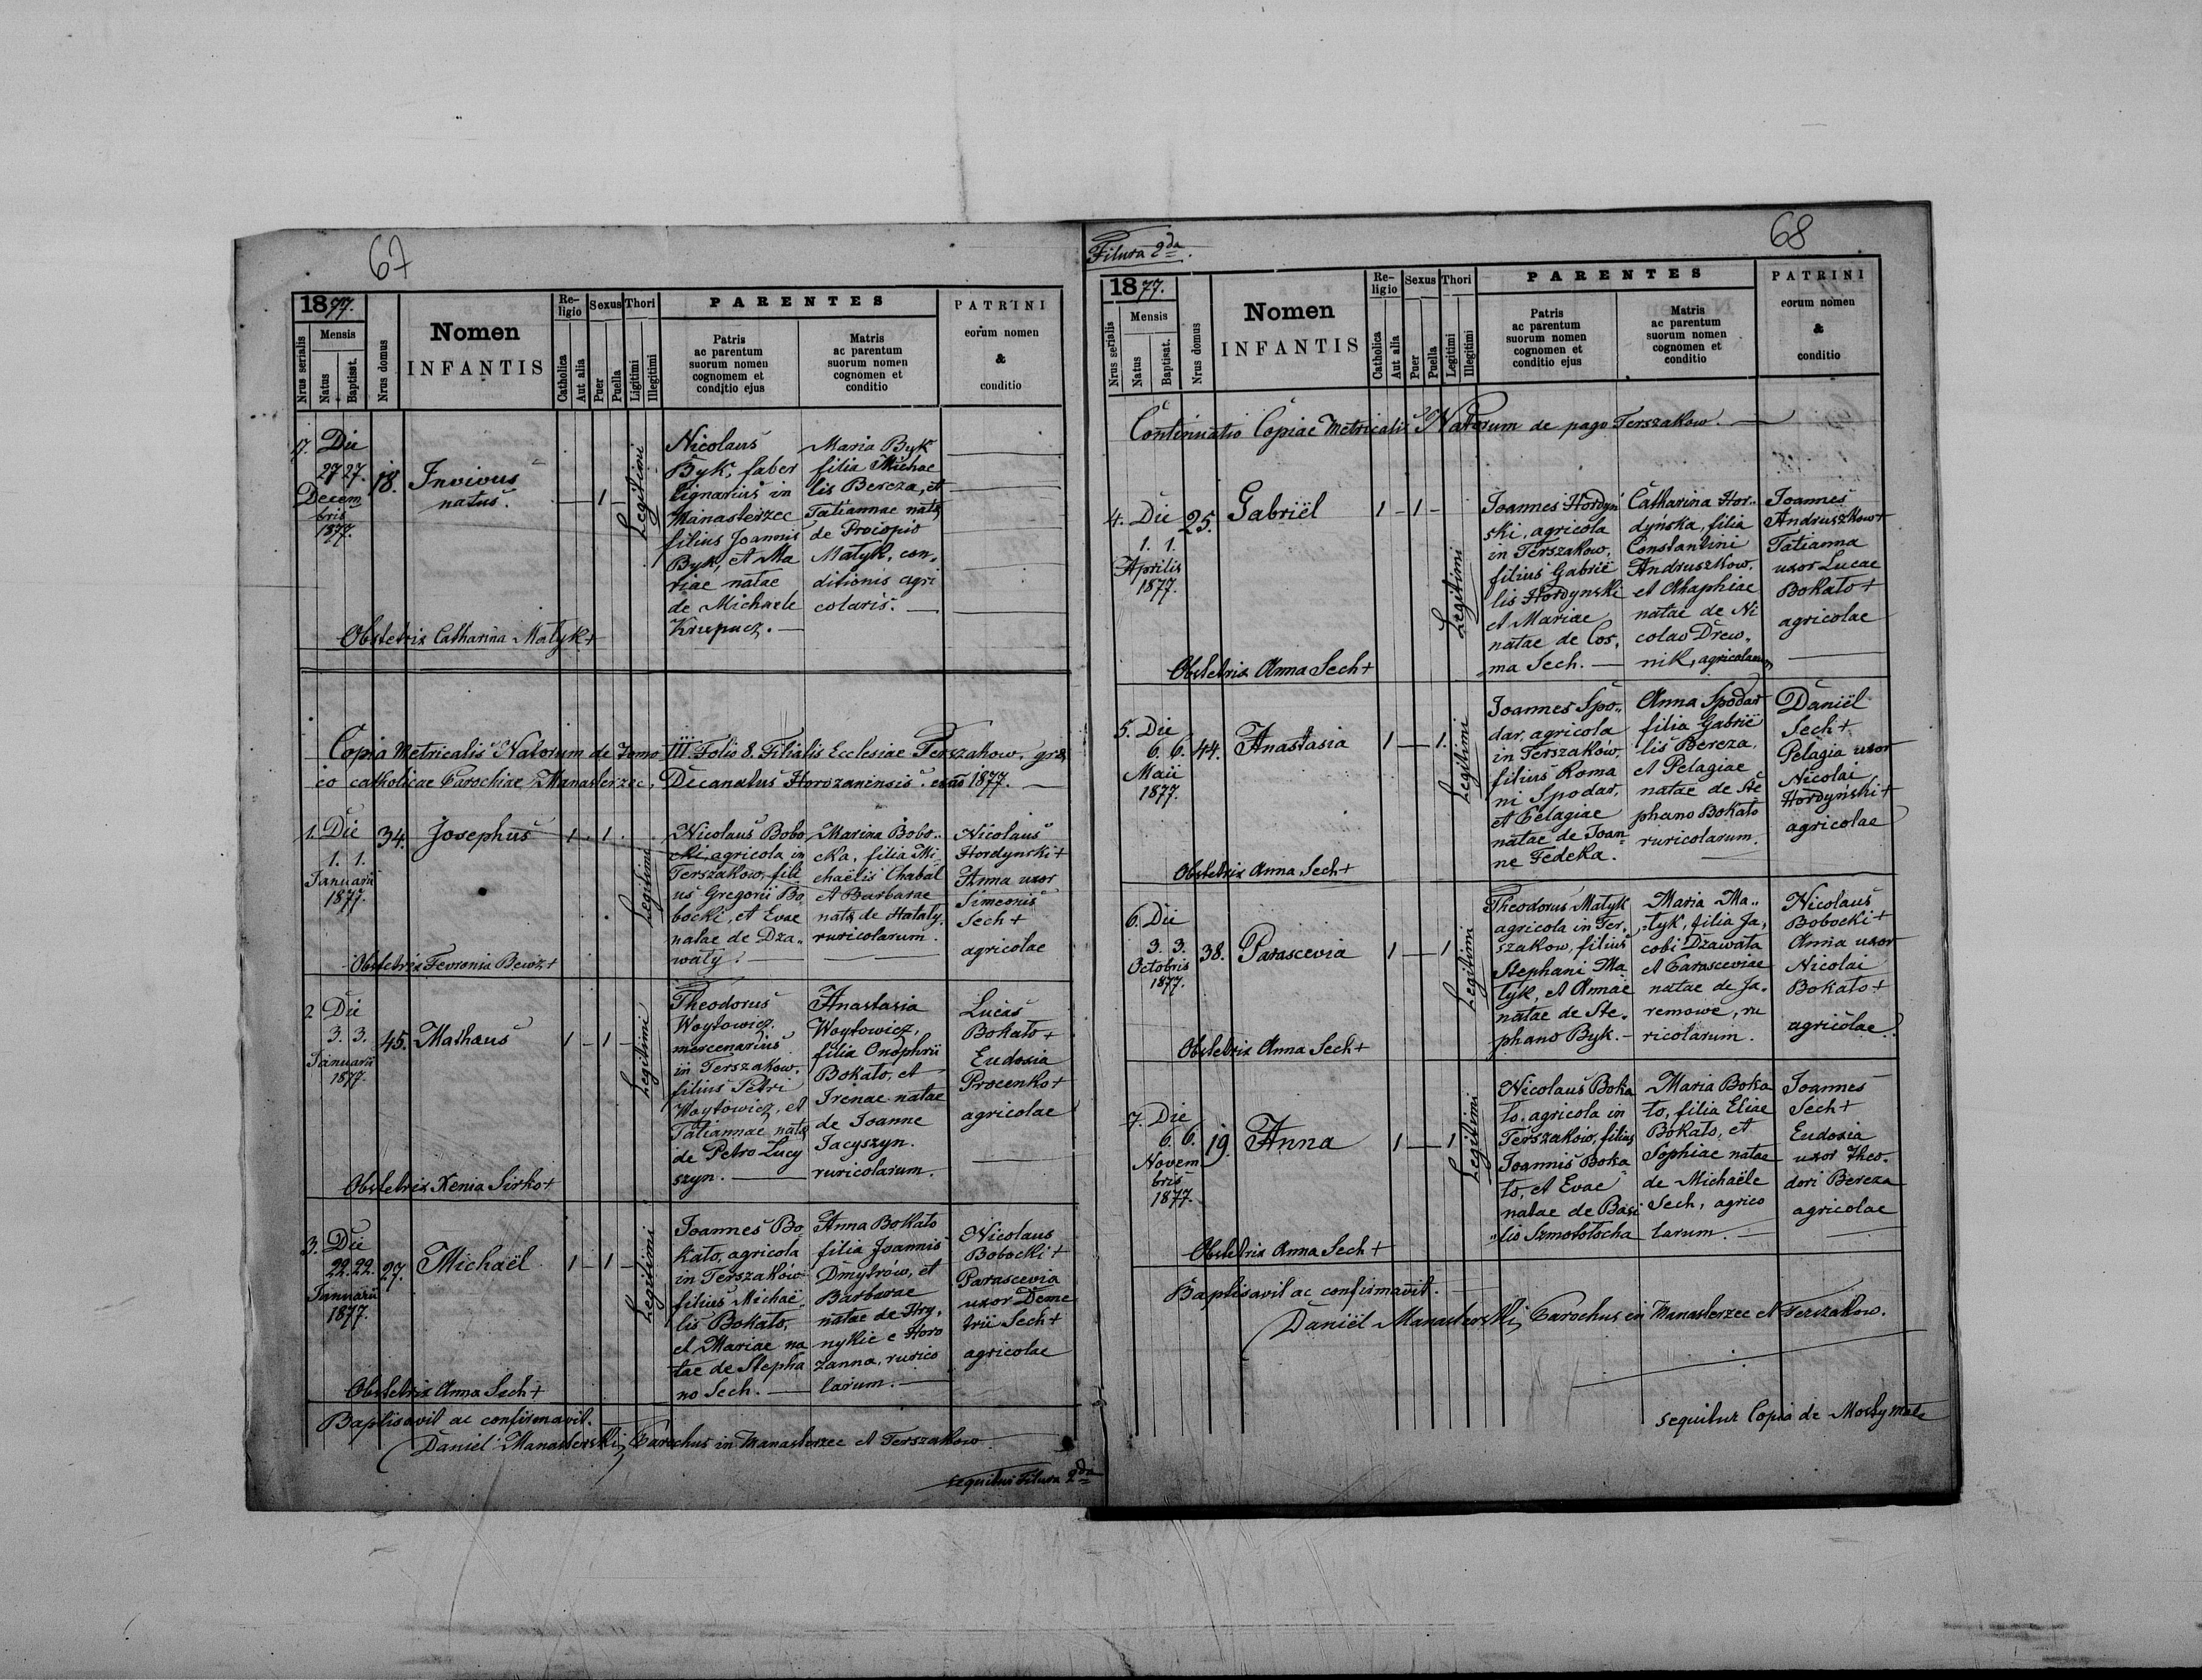 67
1877.
Nrus serialis
Mensis
Natus
Baptisat.
Nrus domus
Nomen
INFANTIS
Re-
ligio
Catholica
Aut alia
Sexus
Puer
Puella
Thori
Ligitimi
Illegitimi
PARENTES
Patris
ac parentum
suorum nomen
cognomem et
conditio ejus
Matris
ac parentum
suorum nomen
cognomen et
conditio
PATRINI
eorum nomen
&
conditio
Die
27 27.
Decem
bris
1877.
18.
Invivus
natus.
1
Legitimi
Nicolaus
Byk, faber
lignarius in
Manasterzec
filius Joannis
Byk, et Ma
riae natae
de Michaele
Krupacz.
Maria Byk
filia Michae
lis Bereza, et
Tatiannae natae
de Procopio
Matyk, con,
ditionis agri
colaris.
Obstetrix Catharina Matyk+
Copia Metricalis Natorum de Tomo III. Folio 8. Filialis Ecclesiae Terszakow, grae
co catholicae Parochiae Manasterzec, Decanatus Horozanensis. 1877.
1. Die
1. 1.
Januarii
1877.
34.
Josephus
1 1
Legitimi
Nicolaus Bobo
cki, agricola in
Terszakow, fili
us Gregorii Bo
bocki, et Evae
natae de Dza„
waty.
Marina Bobo„
cka, filia Mi
chaëlis Chabal
et Barbarae
natae de Hataly,
ruricolarum.
Nicolaus
Hordynski+
Anna uxor
Simeonis
Sech+
agricolae
Obstetrix Fevronia Bewz+
2 Die
3. 3.
Januarii
1877.
45.
Mathaus
1 1
Legitimi
Theodorus
Woytowicz,
mercenarius
in Terszakow,
filius Petri
Woytowicz, et
Tatiannae natae
de Petro Lucy
szyn.
Anastasia
Woytowicz,
filia Onophrii
Bokato, et
Irenae natae
de Joanne
Jacyszyn.
ruricolarum.
Lucas
Bokato+
Eudoxia
Procenko+
agricolae
Obstetrix Xenia Sirko+
3. Die
22. 22.
Januarii
1877.
27.
Michaël
1 1
Legitimi
Joannes Bo
kato, agricola
in Terszaków
filius Michaë„
lis Bokato,
et Mariae na
tae de Stepha
no Sech.
Anna Bokato
filia Joannis
Dmytrów, et
Barbarae
natae de Hry,
nykie e Horo
zanna, rurico
larum.
Nicolaus
Bobocki+
Parascevia
uxor Deme
trii Sech+
agricolae
Obstetrix Anna Sech+
Baptisavit ac confirmavit.
Daniël Manasterski, Parochus in Manasterzec et Terszakow
sequitur Filura 2da
68
Filura 2da.
1877.
Nrus serialis
Mensis
Natus
Baptisat.
Nrus domus
Nomen
INFANTIS
Re-
ligio
Catholica
Aut alia
Sexus
Puer
Puella
Thori
Legitimi
Illegitimi
PARENTES
Patris
ac parentum
suorum nomen
cognomen et
conditio ejus
Matris
ac parentum
suorum nomen
cognomen et
conditio
PATRINI
eorum nomen
&
conditio
Continuatio Copiae Metricalis Natorum de pago Terszakow.
4. Die
1. 1.
Aprilis
1877.
25.
Gabriël
1 1
Legitimi
Joannes Hordyń
ski, agricola
in Terszakow,
filius Gabrië
lis Hordynski
et Mariae
natae de Cos,
ma Sech.
Catharina Hor„
dyńska, filia
Constantini
Andruszkow.
et Ahaphiae
natae de Ni
colao Drew„
nik, agricolarum
Joannes
Andruszkow+
Tatianna
uxor Lucae
Bokato+
agricolae
Obstetrix Anna Sech+
5. Die
6. 6.
Maii
1877.
44.
Anastasia
1 1.
Legitimi
Joannes Spo„
dar, agricola
in Terszaków,
filius Roma
ni Spodar,
et Pelagiae
natae de Joan„
ne Fedeka.
Anna Spodar
filia Gabrië
lis Bereza,
et Pelagiae
natae de Ste
phano Bokato
ruricolarum.
Daniël
Sech+
Pelagia uxor
Nicolai
Hordyński+
agricolae
Obstetrix Anna Sech+
6. Die
3. 3.
Octobris
1877.
38.
Parascevia
1 1
Legitimi
Theodorus Matyk
agricola in Ter,
szakow, filius
Stephani Ma
tyk, et Annae
natae de Ste„
phano Byk.
Maria Ma„
tyk, filia Ja,
cobi Dzawata
et Parasceviae
natae de Ja„
remowe, ru
ricolarum.
Nicolaus
Bobocki+
Anna uxor
Nicolai
Bokato+
agricolae
Obstetrix Anna Sech+
7. Die
6. 6.
Novem
bris
1877.
19.
Anna
1 1
Legitimi
Nicolaus Boka
to, agricola in
Terszaków, filius
Joannis Boka
to, et Evae
natae de Basi
„lio Szmototocha
Maria Boka
to, filia Eliae
Bokato, et
Sophiae natae
de Michaële
Sech, agrico
larum.
Joannes
Sech+
Eudoxia
uxor Theo„
dori Bereza
agricolae
Obstetrix Anna Sech+
Baptisavit ac confirmavit.
Daniël Manasterski, Parochus in Manasterzec et Terszakow.
sequitur Copia de